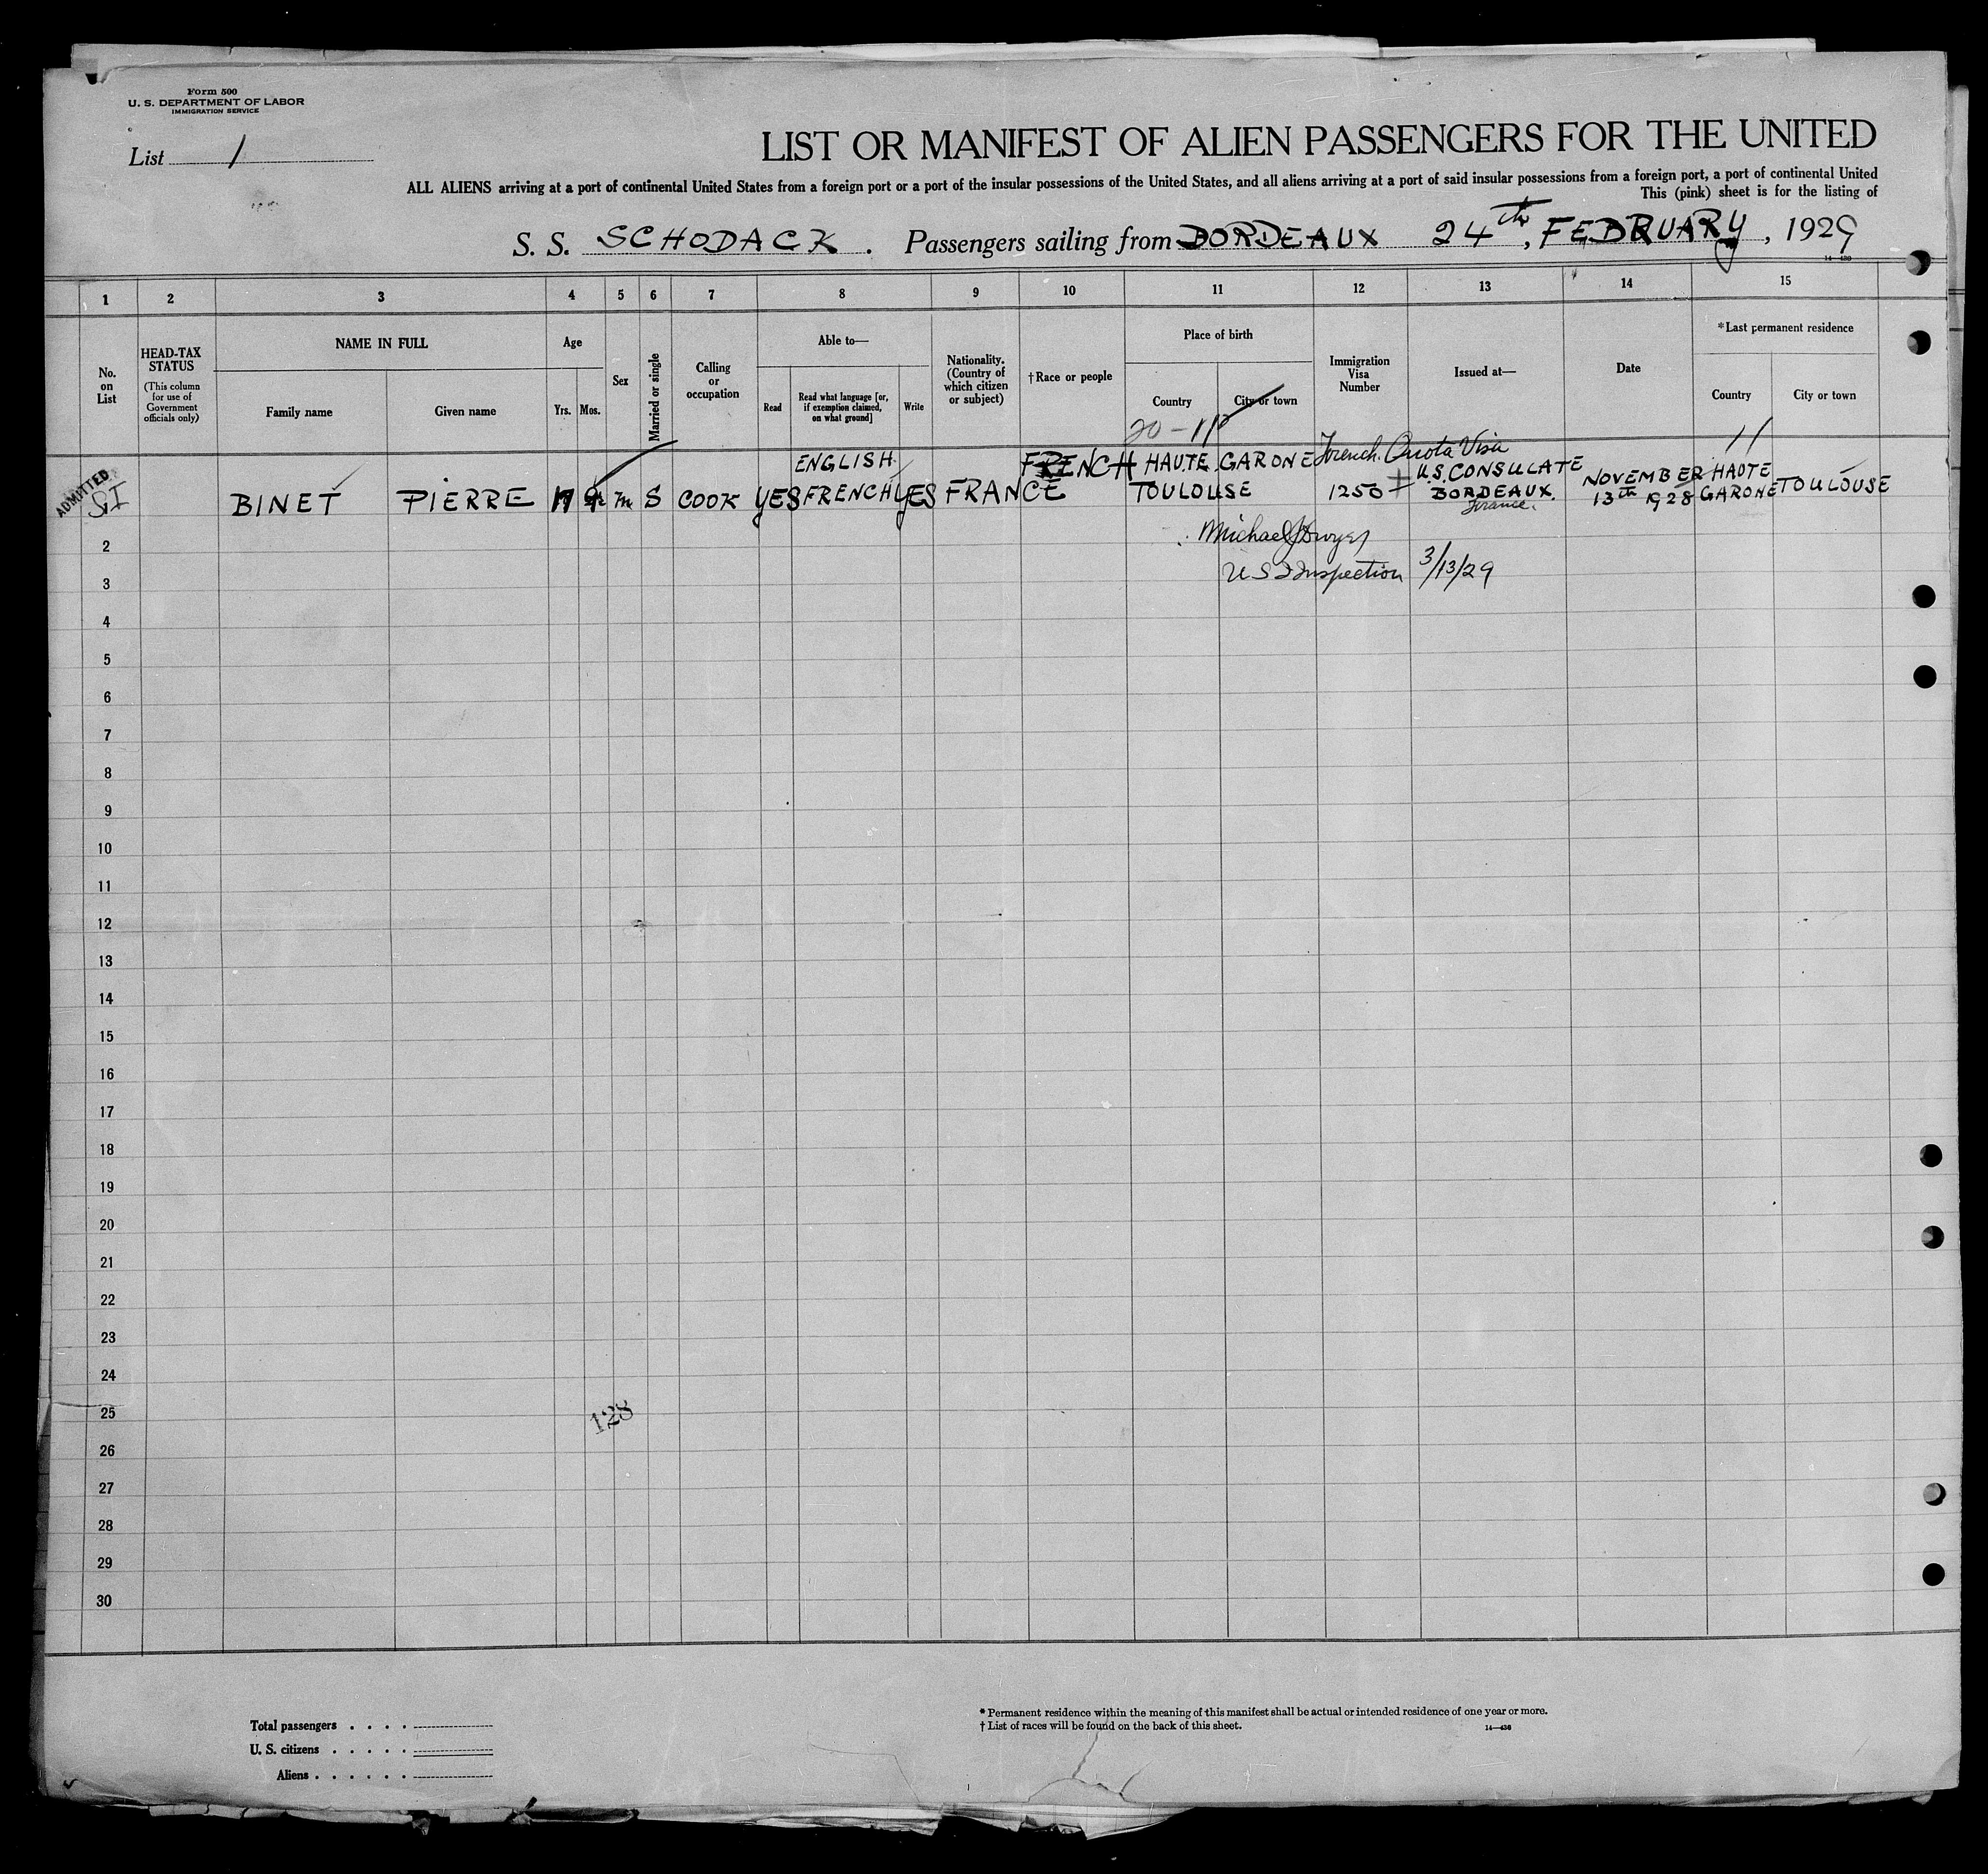 Form 500
U. S. DEPARTMENT OF LABOR
IMMIGRATION SERVICE
List 1
LIST OR MANIFEST OF ALIEN PASSENGERS FOR THE UNITED
ALL ALIENS arriving at a port of continental United States from a foreign port or a port of the insular possessions of the United States, and all aliens arriving at a port of said insular possessions from a foreign port, a port of continental United
This (pink) sheet is for the listing of
S. S. SCHODACK. Passengers sailing from BORDEAUX 24th, FEBRUARY, 1929
14—436
1 2 3 4 5 6 7 8 9 10 11 12 13 14 15
No. on List
HEAD-TAX STATUS
(This column for use of Government officials only)
NAME IN FULL
Family name
Given name
Age
Yrs. Mos.
Sex
Married or single
Calling or occupation
Able to—
Read
Read what language [or, if exemption claimed, on what ground]
Write
Nationality. (Country of which citizen or subject)
†Race or people
Place of birth
Country
City or town
Immigration Visa Number
Issued at—
Date
*Last permanent residence
Country
City or town
20-11
11
French Quota Visa
ADMITTED
SI
BINET PIERRE M S COOK YES ENGLISH FRENCH YES FRANCE FRENCH HAUTE GARONE TOULOUSE 1250 U.S. CONSULATE BORDEAUX France. NOVEMBER 13th 1928 HAUTE GARONE TOULOUSE
2 Michael J Dwyer
3 U S I Inspection 3/13/29
4
5
6
7
8
9
10
11
12
13
14
15
16
17
18
19
20
21
22
23
24
25
128
26
27
28
29
30
Total passengers . . . .
U. S. citizens . . . . .
Aliens . . . . . .
* Permanent residence within the meaning of this manifest shall be actual or intended residence of one year or more.
† List of races will be found on the back of this sheet.
14—436